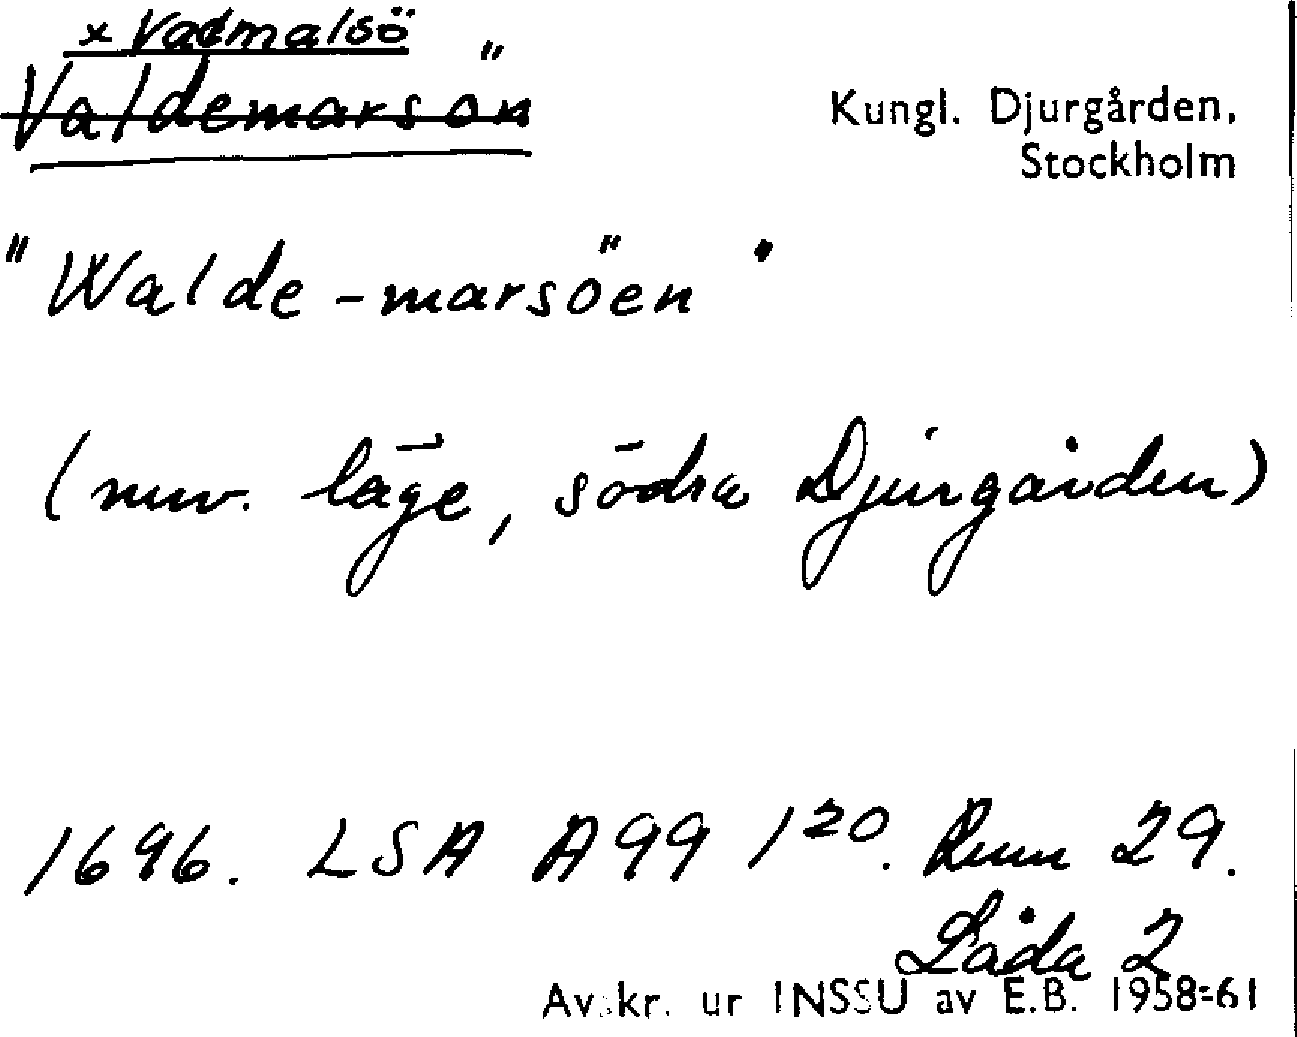 x Vadmalsö
Valdemarsön
Kungl. Djurgården,
Stockholm
"Walde-marsöen"
(nuv. läge, södra Djurgården)
1696. LSA A99 1²⁰. Rum 29.
Låda 2
Avskr. ur INSSU av E.B. 1958-61